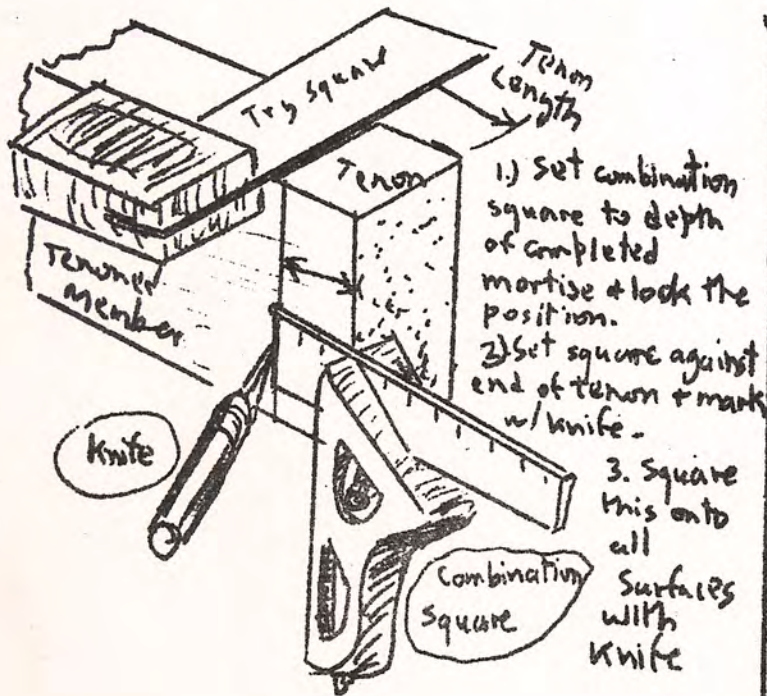 Try Square
Tenon
Length
Tenon
Tenoned
Member
Knife
Combination
Square
1.) Set combination
square to depth
of completed
mortise + lock the
position.
2) Set square against
end of tenon + mark
w/ knife.
3. Square
this onto
all
Surfaces
with
Knife